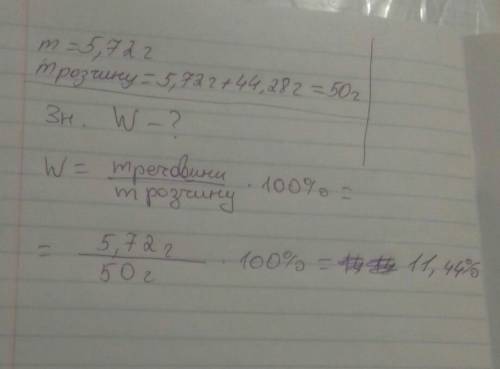 m = 5,72 г
m розчину = 5,72 г + 44,28 г = 50 г
Зн. W - ?
W = m речовини / m розчину · 100% =
= 5,72 г / 50 г · 100% = 11,44%